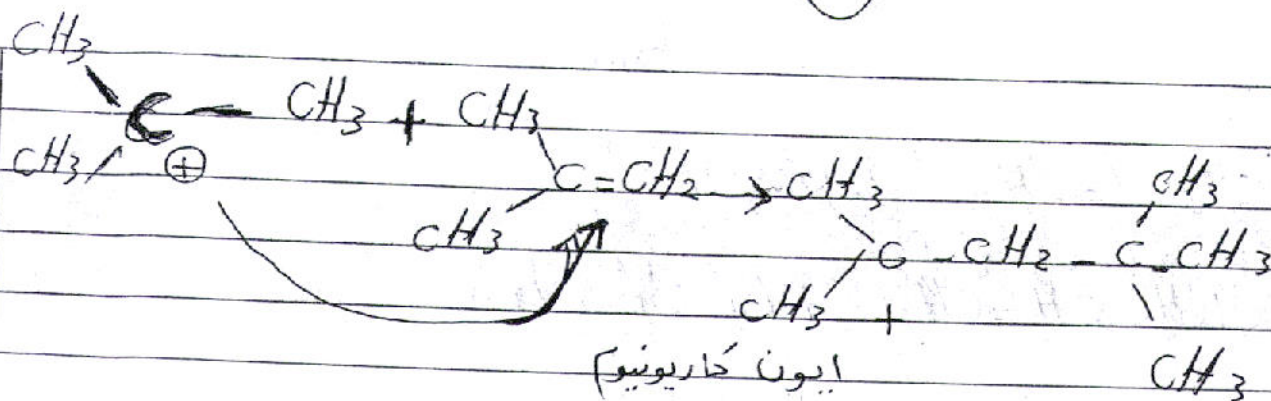 CH3
C - CH3 + CH3
CH3 ⊕
C = CH2 → CH3 CH3
CH3 C - CH2 - C - CH3
CH3 +
ايون كاريونيوم CH3